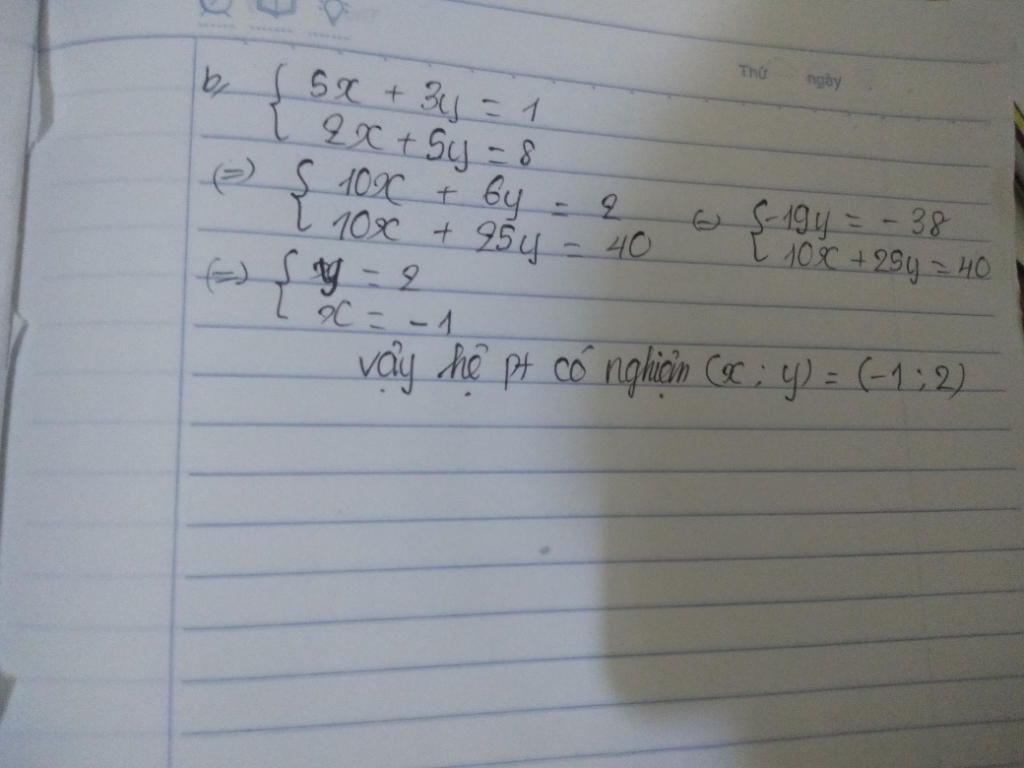 Thứ ngày
b, { 5x + 3y = 1
2x + 5y = 8
(=) { 10x + 6y = 2 (=) { -19y = -38
10x + 25y = 40 10x + 25y = 40
(=) { y = 2
x = -1
vậy hệ pt có nghiệm (x ; y) = (-1 ; 2)